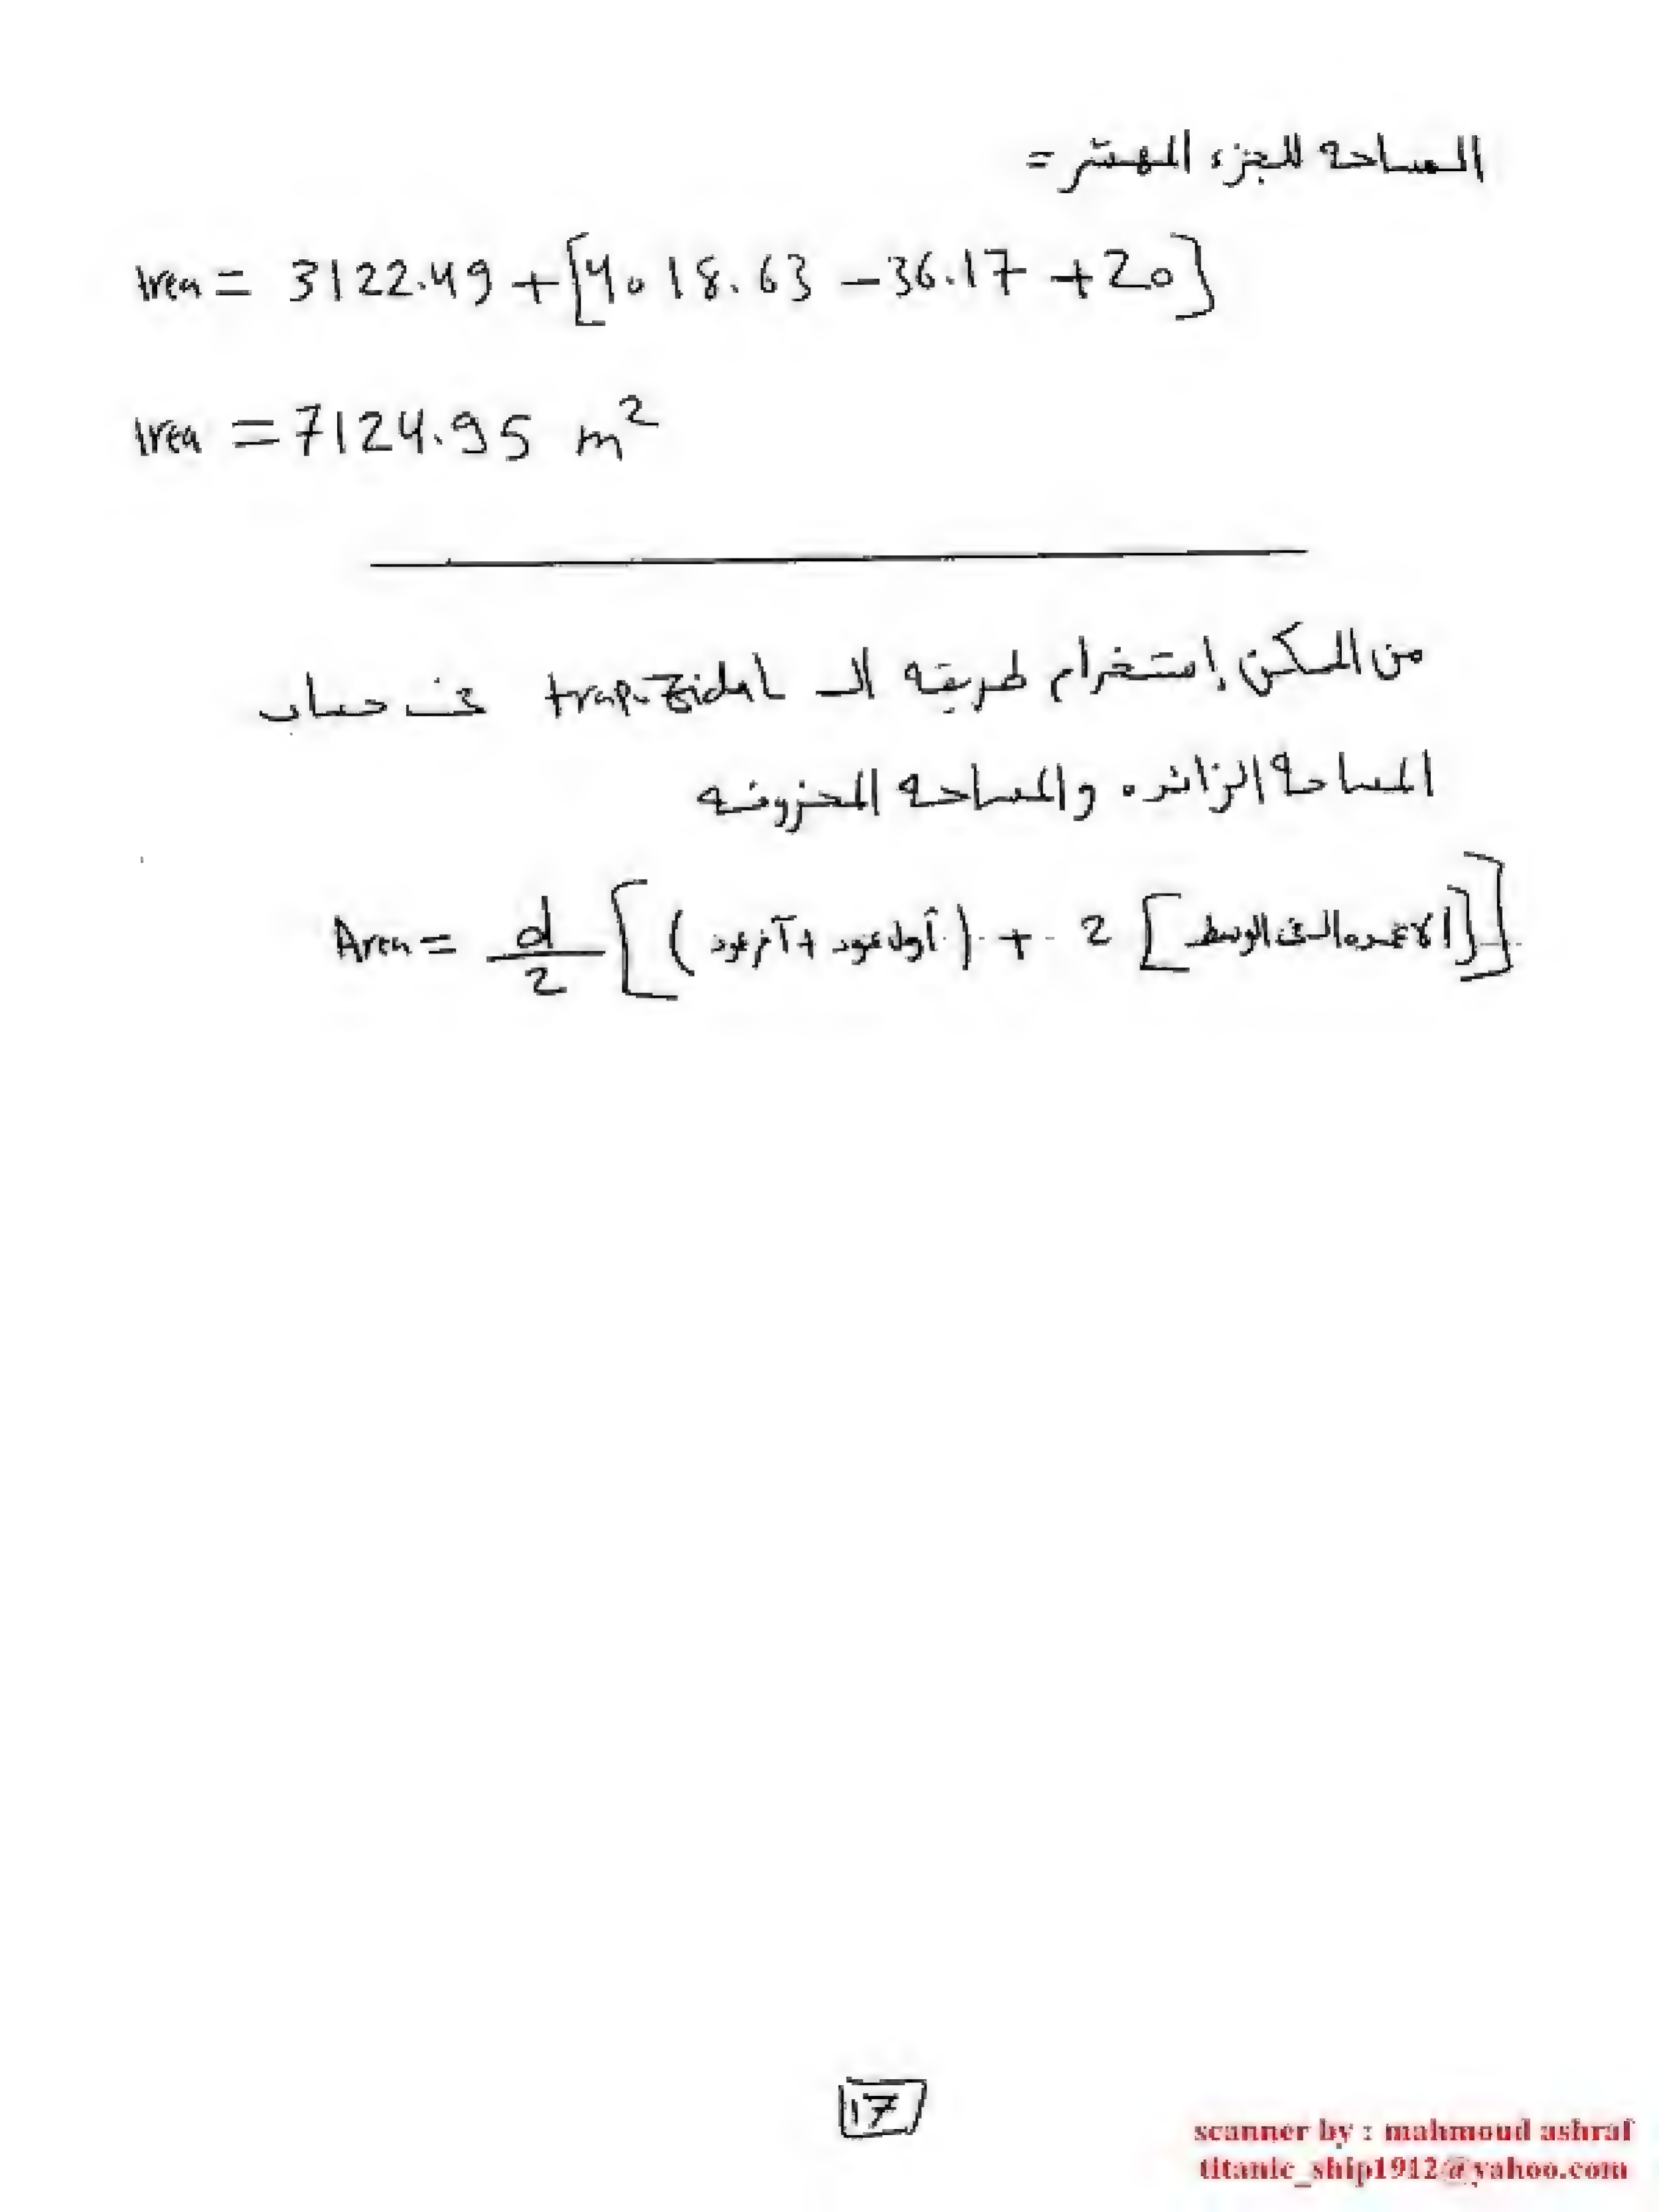 المساحة للجزء المهشر =
Area = 3122.49 + [4018.63 - 36.17 + 20]
Area = 7124.95 m²
من الممكن إستخدام طريقه الـ trapezidal فى حساب
المساحة الزائده والمساحة المحذوفه
Area = d/2 [ (أول عمود + آخر عمود) + 2 [الاعمده التى فى الوسط] ]
17
scanner by : mahmoud ashraf
titanic_ship1912@yahoo.com